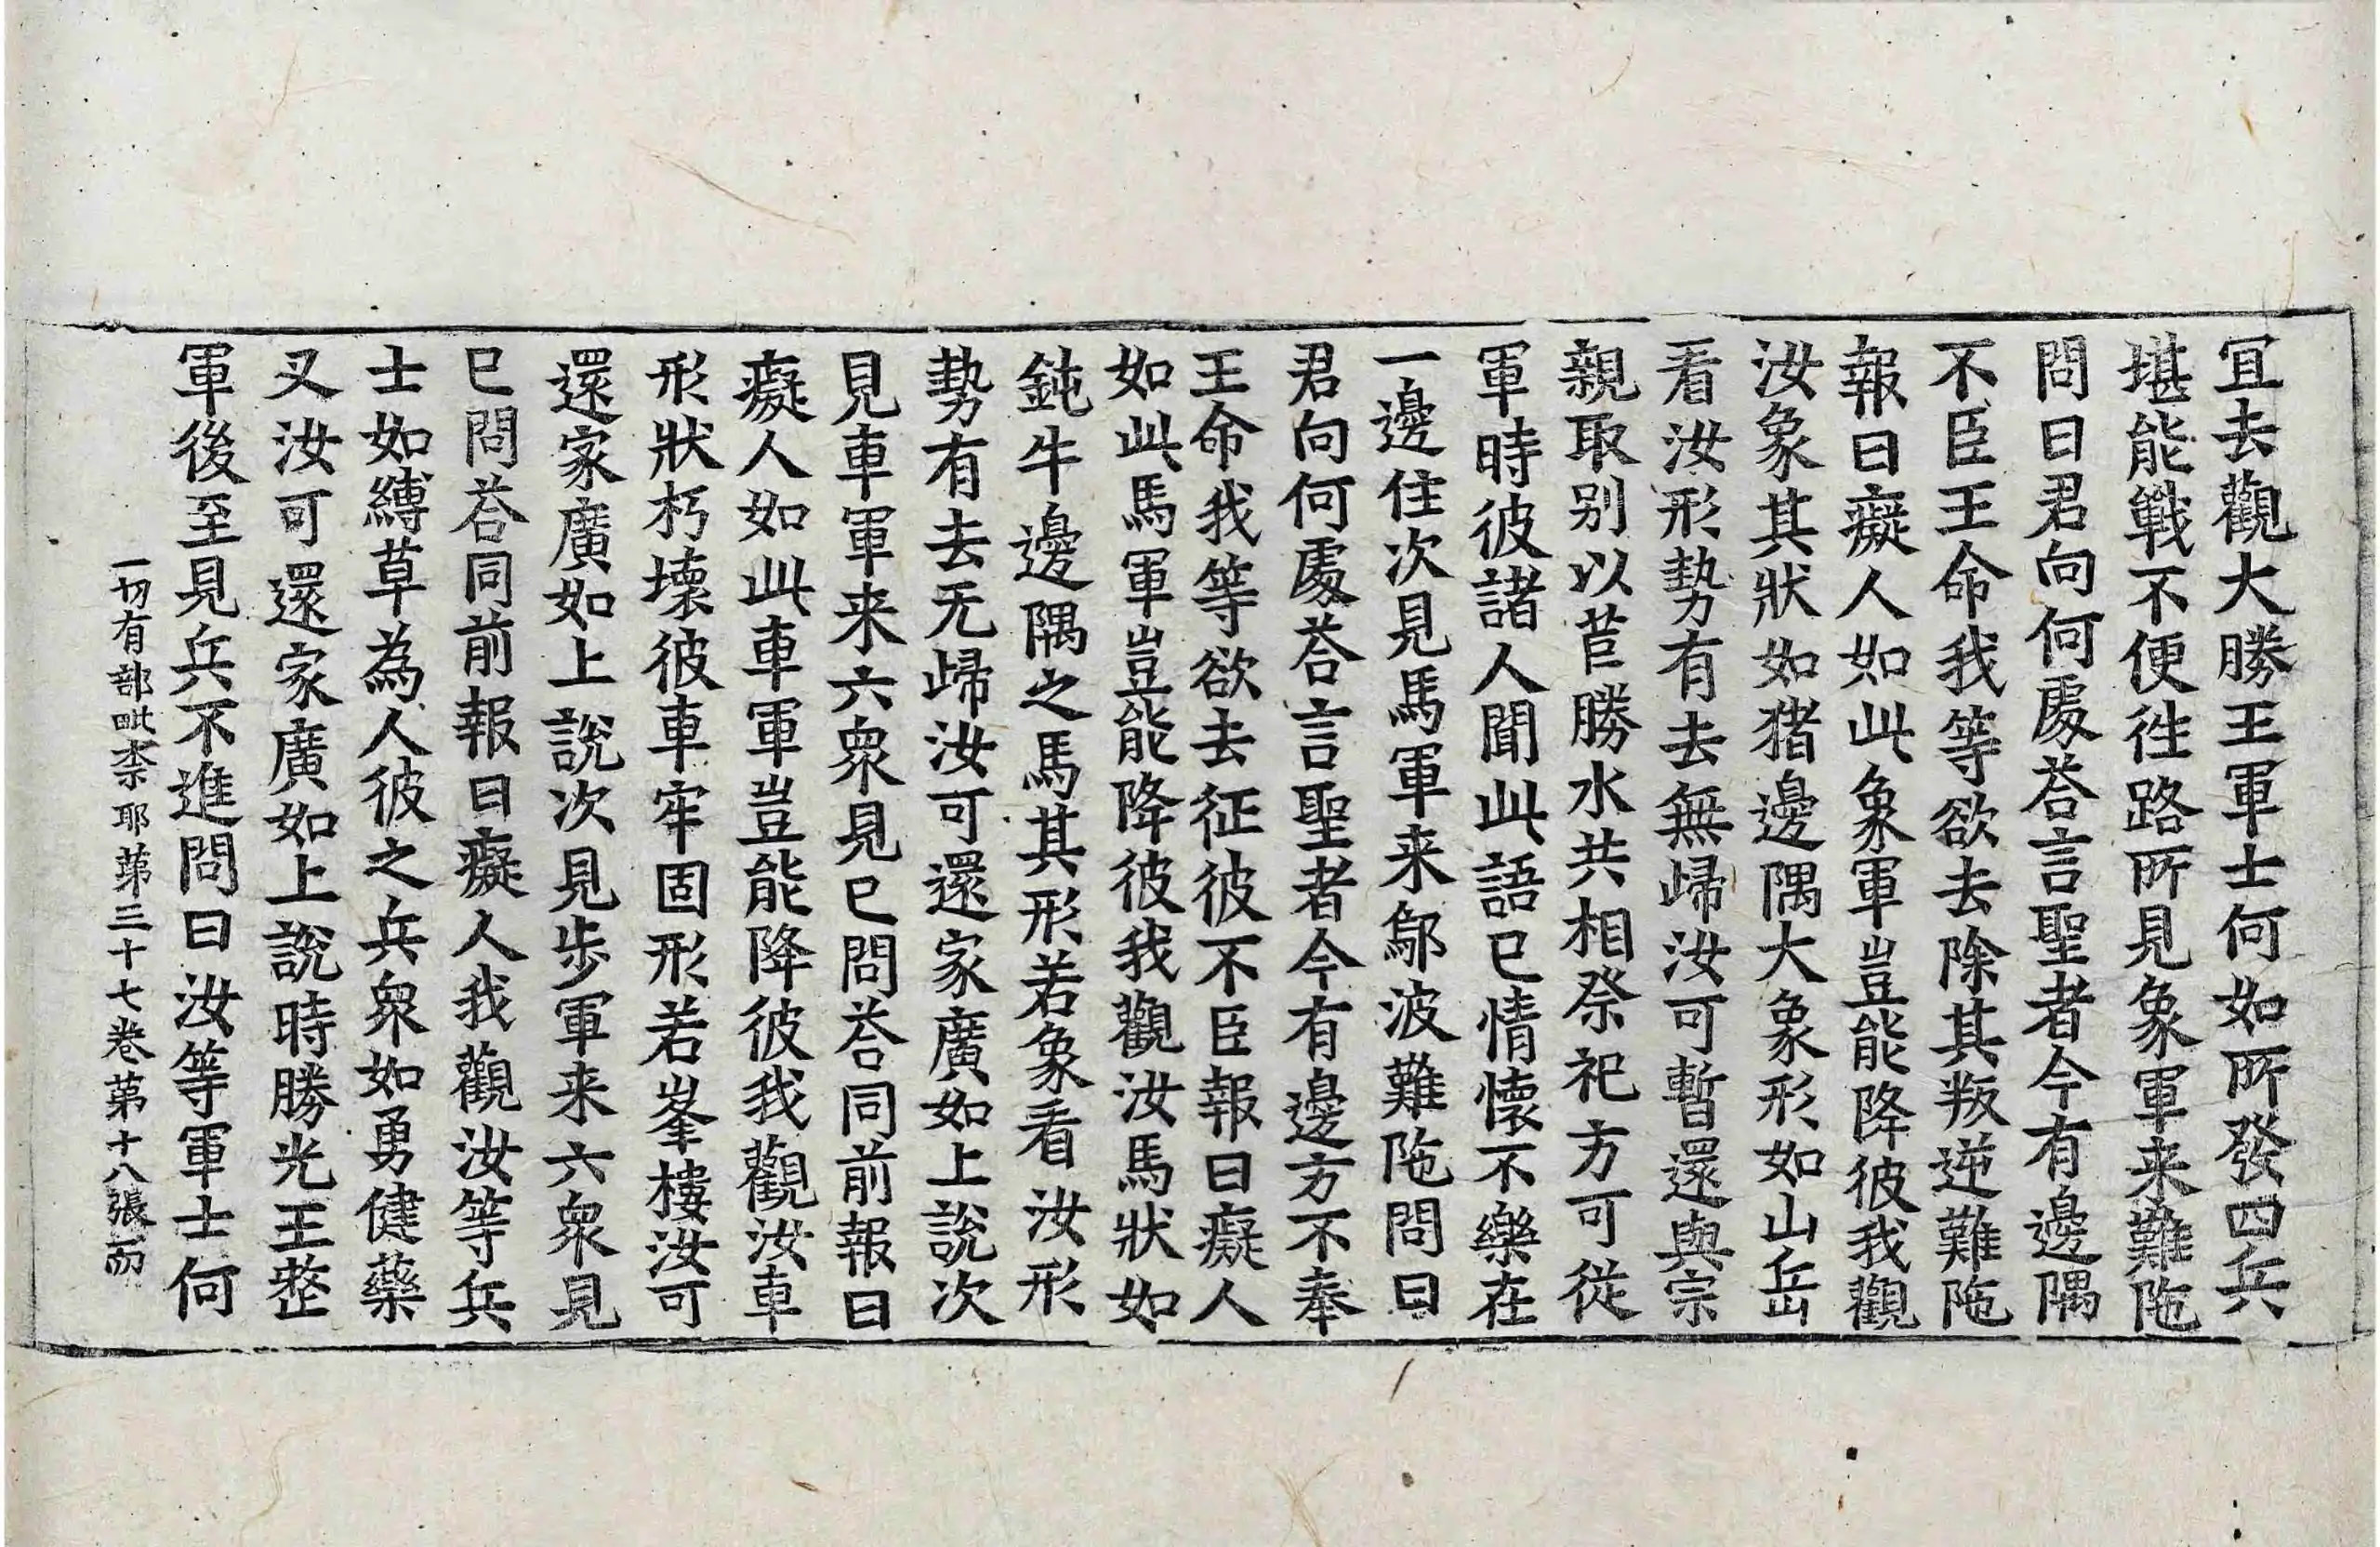 宜去觀大勝王軍士何如所發四兵
堪能戰不便徃路所見象軍来難陁
問曰君向何處荅言聖者今有邊隅
不臣王命我等欲去除其叛逆難陁
報曰癡人如此象軍豈能降彼我觀
汝象其狀如猪邊隅大象形如山岳
看汝形勢有去無歸汝可暫還與宗
親取別以苣勝水共相祭祀方可從
軍時彼諸人聞此語已情懷不樂在
一邊住次見馬軍来鄔波難陁問曰
君向何處荅言聖者今有邊方不奉
王命我等欲去征彼不臣報曰癡人
如此馬軍豈能降彼我觀汝馬狀如
鈍牛邊隅之馬其形若象看汝形
勢有去无歸汝可還家廣如上說次
見車軍来六衆見已問荅同前報曰
癡人如此車軍豈能降彼我觀汝車
形狀朽壞彼車牢固形若峯樓汝可
還家廣如上說次見步軍来六衆見
已問荅同前報曰癡人我觀汝等兵
士如縛草為人彼之兵衆如勇健藥
叉汝可還家廣如上說時勝光王整
軍後至見兵不進問曰汝等軍士何
一切有部毗柰耶第三十七卷第十八張而